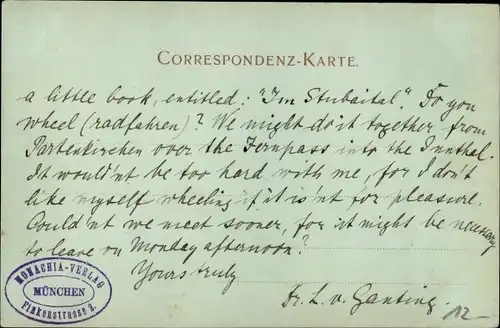 CORRESPONDENZ-KARTE.
a little book, entitled: "Im Stubaital". Do you
wheel (radfahren)? We might do it together from
Partenkirchen over the Fernpass into the Innthal.
It would'nt be too hard with me, for I don't
like myself wheeling if it is'nt for pleasure.
Could'nt we meet sooner, for it might be necessary
to leave on Monday afternoon?
Yours truly
Dr. L. v. Ganting.
MONACHIA-VERLAG
MÜNCHEN
Finkenstrasse 2.
12.-